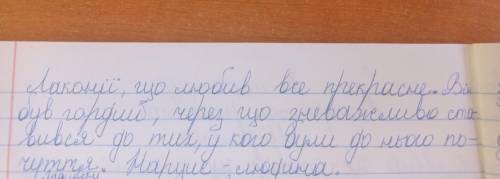 Лаконії, що любив все прекрасне. Він
був гордий, через що зневажливо ста-
вився до тих, у кого були до нього по-
чуття. Нарцис - людина.